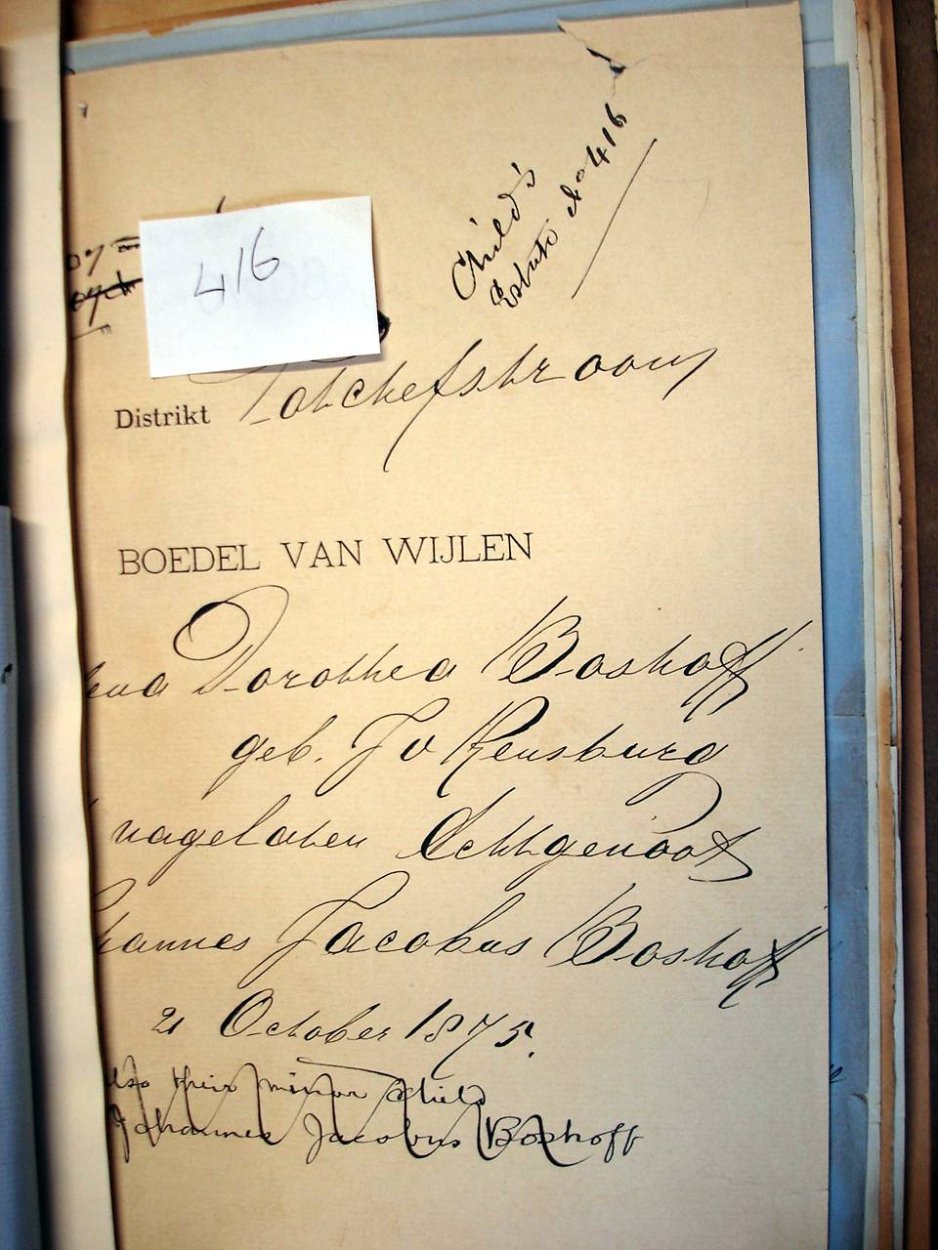 Child's
Estate No 416
416
Distrikt Potchefstroom
BOEDEL VAN WIJLEN
Dorothea Boshoff
geb. J v Rensburg
nagelaten Echtgenoot
hannes Jacobus Boshoff
21 October 1875.
lso their minor child
Johannes Jacobus Boshoff